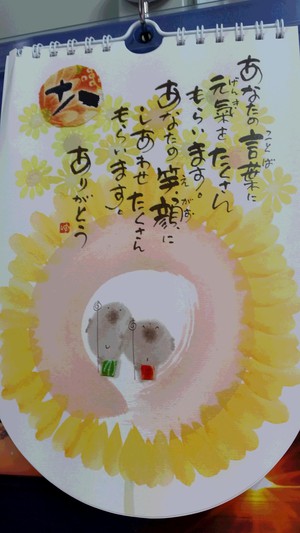 十六
あなたの言葉に
ことば
元氣をたくさん
げんき
もらいます。
あなたの笑顔に
えがお
しあわせたくさん
もらいます。
ありがとう